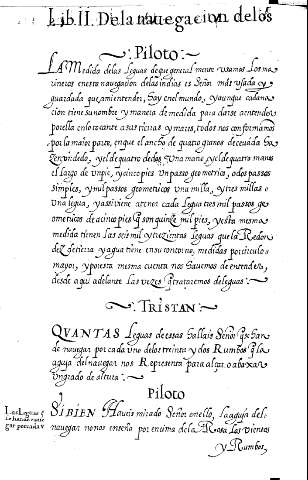 Lib. II. De la nauegacion delos
Piloto
LA Medida delas Leguas de que general mente vsamos Los ma
rineros en esta nauegacion delas indias es Señor mas vsada y
guardada que, ami entender, hay en el mundo, y aunque cada na
cion tiene su nombre y manera de medida para darse aentender
por ella en lo tocante a sus tierras y mares, todos nos conformamos
por la maior parte, en que el ancho de quatro granos de ceuada ha
ser vn dedo, y el de quatro dedos Vna mano, y el de quatro manos
el largo de vn pie, y cinco pies vn passo geometrico, o dos passos
simples, y mil passos geometricos vna milla, y tres millas o
vna legua, y assi viene atener cada legua tres mil passos ge
ometricos de cinco pies que son quinze mil pies, y esta mesma
medida tienen Las seis mil y trezientas leguas que la Redon
dez de tierra y agua tiene en su contorno, medidas por circulo
mayor, y por esta mesma cuenta nos hauemos de entender,
desde aqui adelante Las vezes que trataremos de leguas
TRISTAN
QVANTAS Leguas de essas hallais Señor que se han
de nauegar por cada vno delos treinta y dos Rumbos que la
aguja del nauegar nos Representa para alçar o abaxar
vn grado de altura
Piloto
SI BIEN Haueis mirado Señor en ello, La aguja del
nauegar nos enseña por encima de la Rosa los vientos
y Rumbos